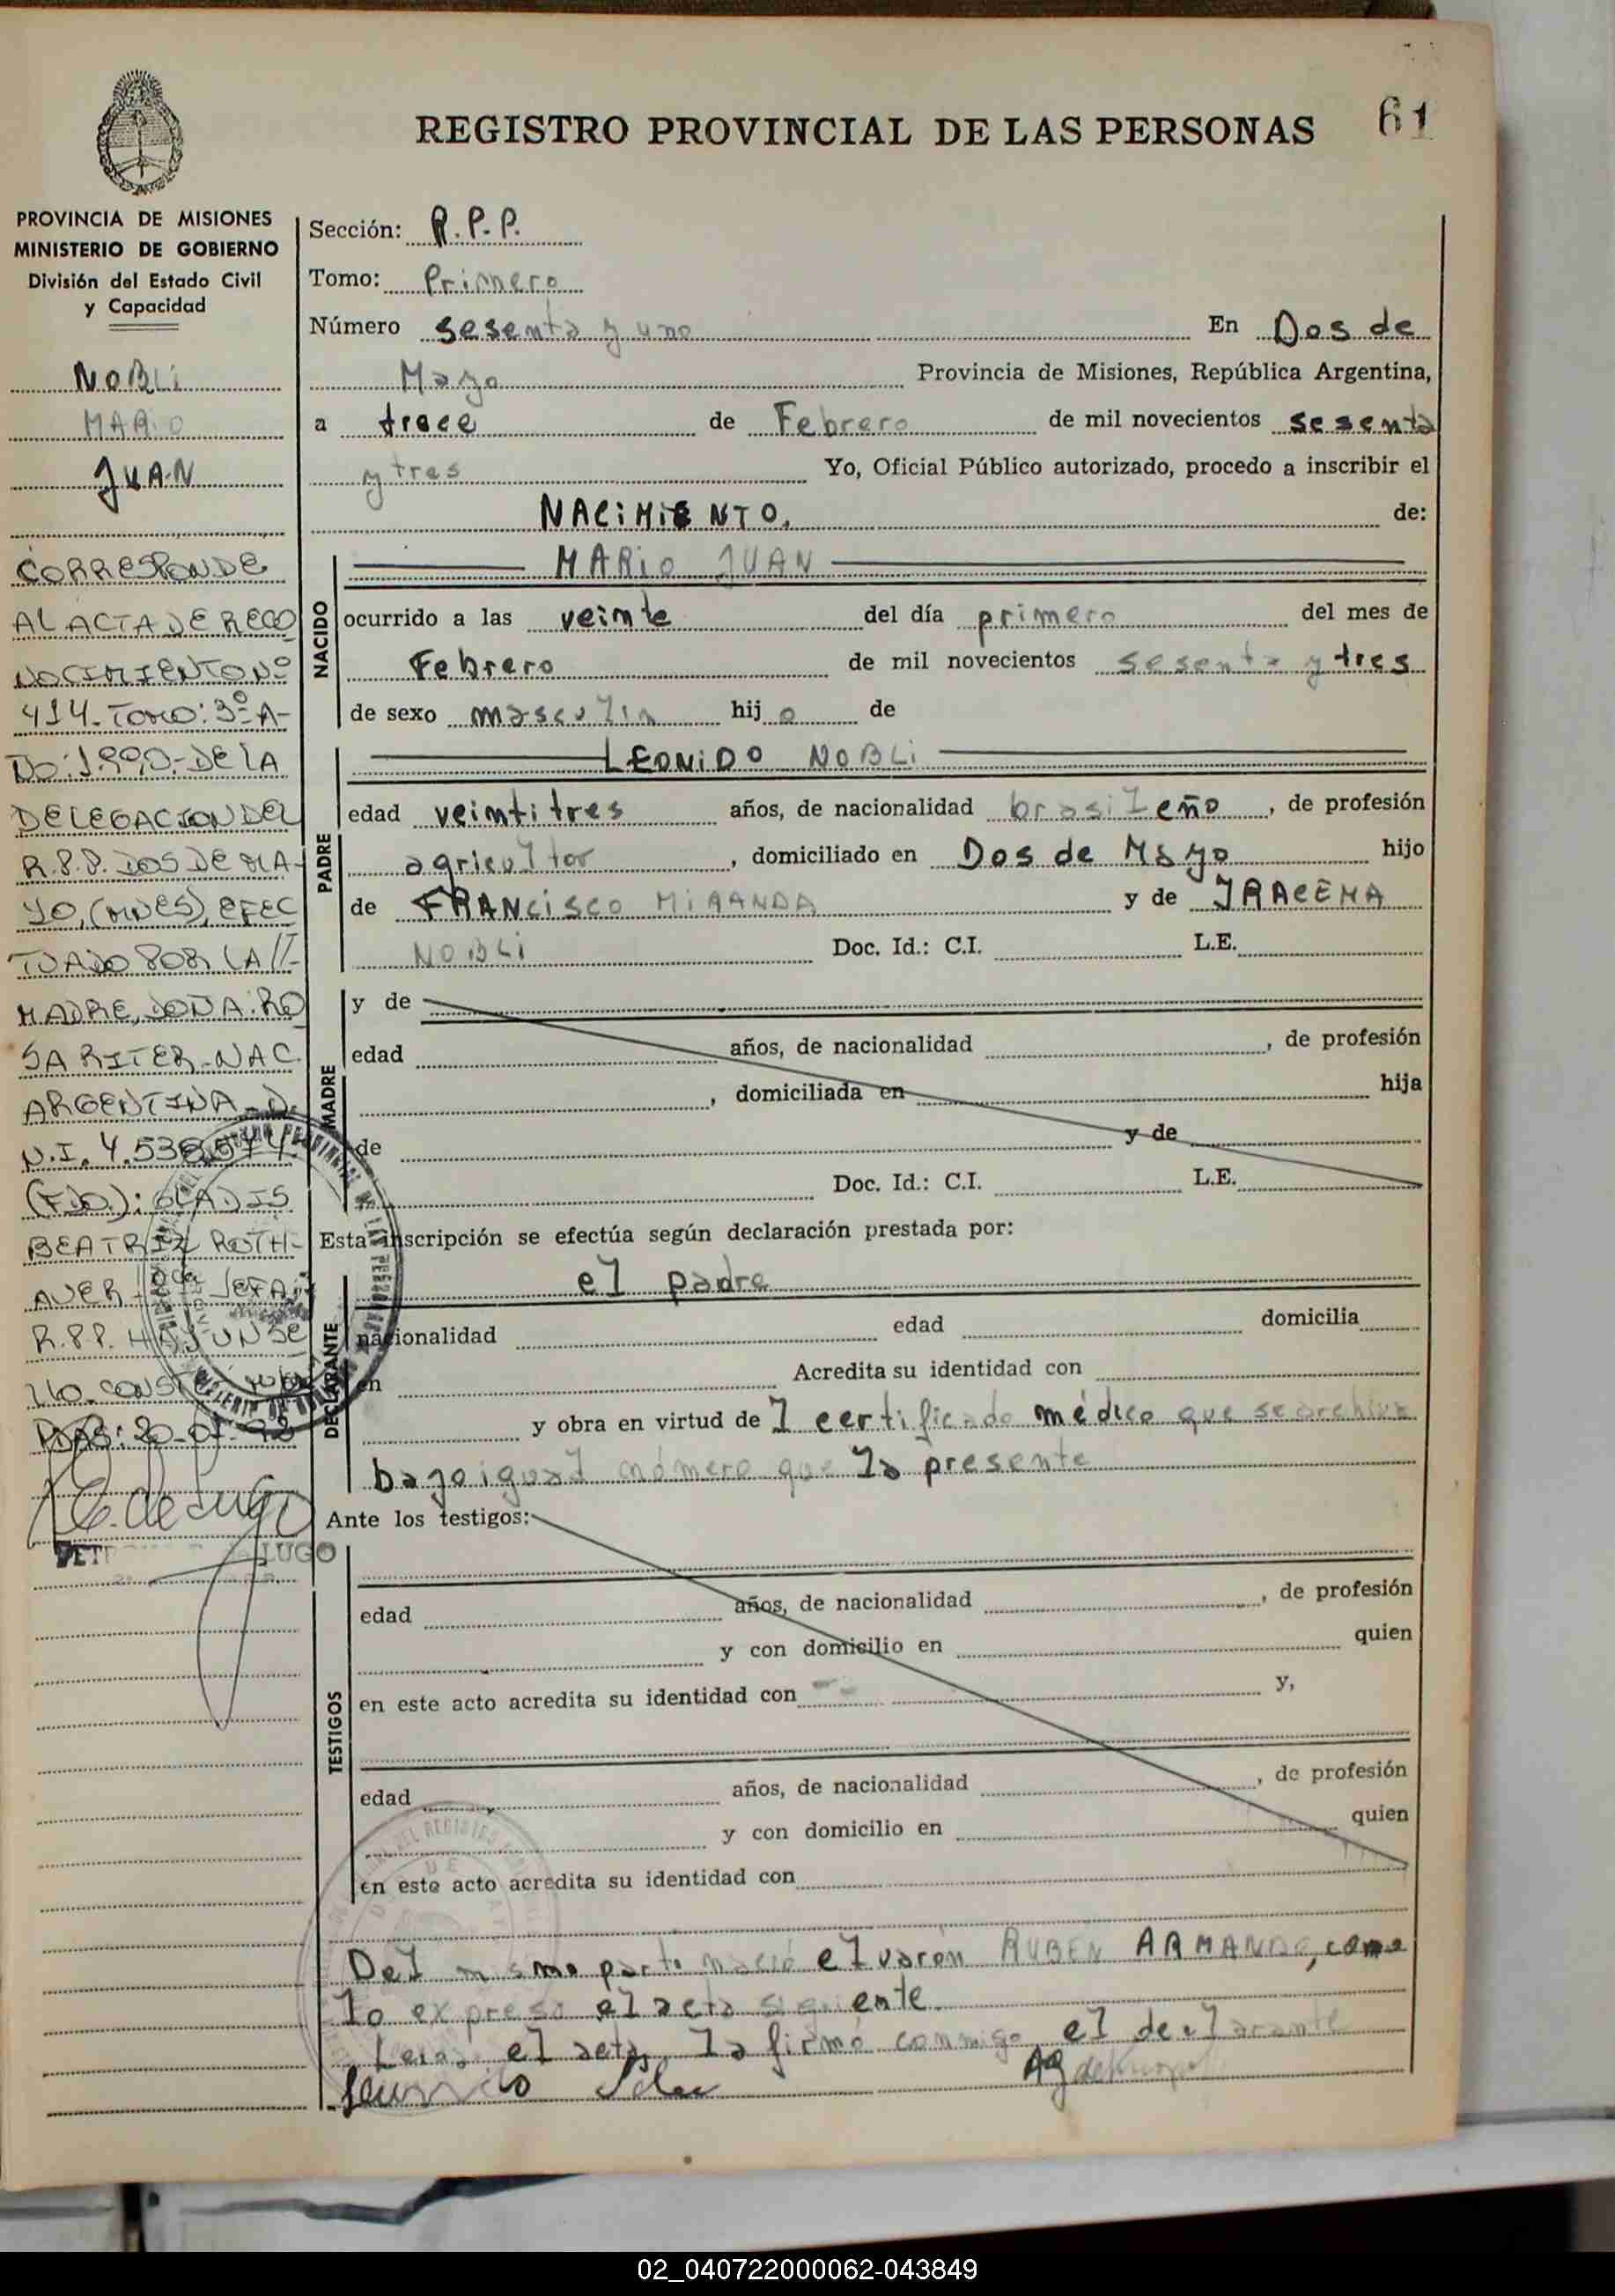 REGISTRO PROVINCIAL DE LAS PERSONAS
61
PROVINCIA DE MISIONES
MINISTERIO DE GOBIERNO
División del Estado Civil
y Capacidad
NOBLI
MARIO
JUAN
CORRESPONDE
AL ACTA DE RECO
NOCIMIENTO Nº
414-TOMO: 3º-A-
ÑO: 1.990.- DE LA
DELEGACION DEL
R.P.P. DOS DE MA-
YO, (MNES), EFEC
TUADO POR LA //-
MADRE, DOÑA: RO
SA RITER-NAC.
ARGENTINA-D.
N.I. 4.538.
(FDO.): GLADIS
BEATRIZ ROTH-
AUER- JEFA
R.P.P. HAY UN SE
LLO. CONST
PDAS: 20-01-92
LUGO
Sección: R.P.P.
Tomo: Primero
Número sesenta y uno En Dos de
Mayo Provincia de Misiones, República Argentina,
a trece de Febrero de mil novecientos sesenta
y tres Yo, Oficial Público autorizado, procedo a inscribir el
NACIMIENTO. de:
NACIDO
MARIO JUAN
ocurrido a las veinte del día primero del mes de
Febrero de mil novecientos sesenta y tres
de sexo masculin hij o de
PADRE
LEONIDO NOBLI
edad veintitres años, de nacionalidad brasileño, de profesión
agricultor, domiciliado en Dos de Mayo hijo
de FRANCISCO MIRANDA y de IRACEMA
NOBLI Doc. Id.: C.I. L.E.
MADRE
y de
edad años, de nacionalidad , de profesión
, domiciliada en hija
de y de
Doc. Id.: C.I. L.E.
Esta inscripción se efectúa según declaración prestada por:
DECLARANTE
el padre
nacionalidad edad domicilia
en Acredita su identidad con
y obra en virtud de l certificado médico que se archiva
bajo igual número que la presente
Ante los testigos:
TESTIGOS
edad años, de nacionalidad , de profesión
y con domicilio en quien
en este acto acredita su identidad con y,
edad años, de nacionalidad , de profesión
y con domicilio en quien
en este acto acredita su identidad con
Del mismo parto nació el varón RUBEN ARMANDO, como
lo expresa el acta siguiente.
Leida el acta, la firmó conmigo el declarante
02_040722000062-043849